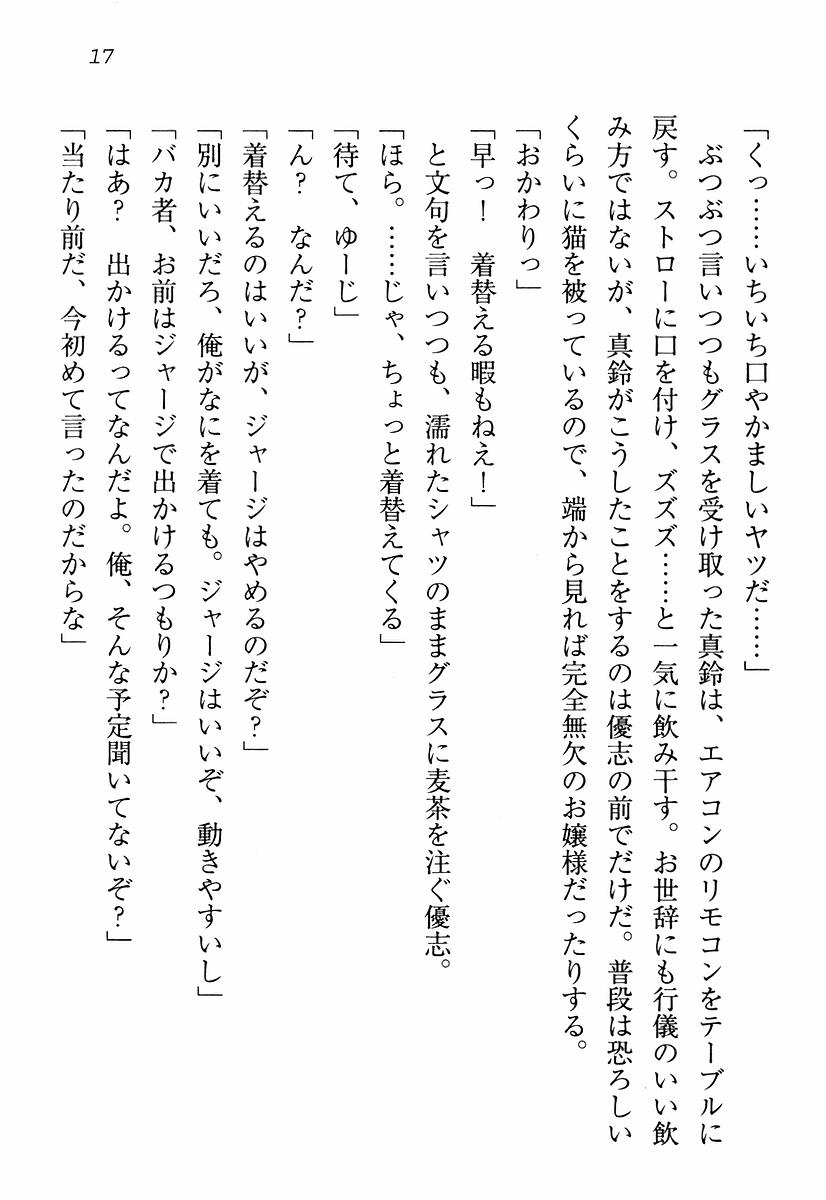 17
「くっ……いちいち口やかましいヤツだ……」
　ぶつぶつ言いつつもグラスを受け取った真鈴は、エアコンのリモコンをテーブルに
戻す。ストローに口を付け、ズズズ……と一気に飲み干す。お世辞にも行儀のいい飲
み方ではないが、真鈴がこうしたことをするのは優志の前でだけだ。普段は恐ろしい
くらいに猫を被っているので、端から見れば完全無欠のお嬢様だったりする。
「おかわりっ」
「早っ！　着替える暇もねえ！」
　と文句を言いつつも、濡れたシャツのままグラスに麦茶を注ぐ優志。
「ほら。……じゃ、ちょっと着替えてくる」
「待て、ゆーじ」
「ん？　なんだ？」
「着替えるのはいいが、ジャージはやめるのだぞ？」
「別にいいだろ、俺がなにを着ても。ジャージはいいぞ、動きやすいし」
「バカ者、お前はジャージで出かけるつもりか？」
「はあ？　出かけるってなんだよ。俺、そんな予定聞いてないぞ？」
「当たり前だ、今初めて言ったのだからな」